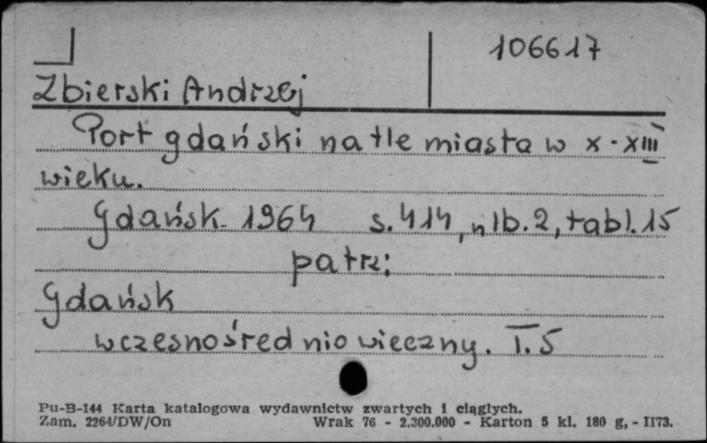 106617
Zbierski Andrzej
Port gdański na tle miasta w X-XIII
wieku.
Gdańsk 1964 s. 414, nlb. 2, tabl. 15
patrz:
Gdańsk
wczesnośredniowieczny. T. 5
Pu-B-144 Karta katalogowa wydawnictw zwartych i ciągłych.
Zam. 2264/DW/On Wrak 76 - 2.300.000 - Karton 5 kl. 180 g, - II73.